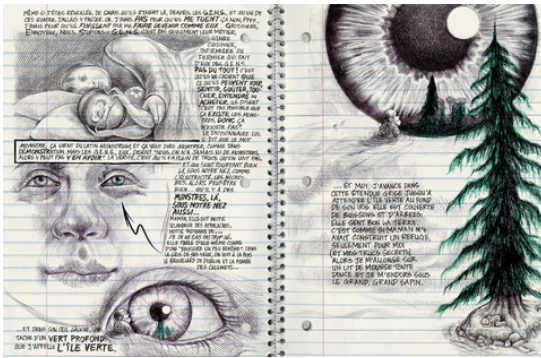 MÊME SI J'ÉTAIS REVENUE DE
ET QU'UN DE
CES QUATRE, J'ALLAIS Y PASSER, OR, J'AVAIS PAS PEUR QU'ILS ME TUENT
J'AVAIS PEUR QU'ILS FINISSENT PAR ME FAIRE DEVENIR COMME EUX... GROSSIERS,
ENNUYEUX, NULS, STUPIDES G.E.N.S. C'EST PAS SEULEMENT LEUR MÉTIER,
CUISINIER,
INFIRMIÈRE OU
FERMIER QUI FAIT
D'EUX DES G.E.N.S.
PAS DU TOUT! C'EST
QU'ILS NE CROIENT QUE
CE QU'ILS PEUVENT VOIR,
SENTIR, GOÛTER, TOU-
CHER, ENTENDRE OU
ACHETER. ILS DISENT
C'EST PAS POSSIBLE QUE
ÇA EXISTE, LES MONS-
TRES, DONC ÇA
N'EXISTE PAS
LE DICTIONNAIRE LUI,
IL DIT QUE LE MOT
MONSTRE, ÇA VIENT DU LATIN MONSTRUM ET ÇA VEUT DIRE MONTRER, COMME DANS
DÉMONSTRATION, MAIS LES G.E.N.S., EUX, DISENT
ALORS Y PEUT PAS Y EN AVOIR". LA VÉRITÉ, C'EST QU'Y A PLEIN DE TRUCS QU'ON VOIT PAS,
ET QUI SONT POURTANT BIEN
LÀ, SOUS NOTRE NEZ, COMME
L'ÉLECTRICITÉ, LES MICRO-
BES, ALORS PEUT-ÊTRE
BIEN... QU'IL Y A DES
MONSTRES, LÀ,
SOUS NOTRE NEZ
AUSSI...
MAMAN, ELLE EST
ELLE PARLE D'ELLE-MÊME COMME
D'UN
LE GRIS DE SES YEUX, ON VOIT À LA FOIS
LE BROUILLARD DE LONDON ET LA FUMÉE
DES CALUMETS...
ET DANS SON ŒIL GAUCHE, UNE
TACHE D'UN VERT PROFOND
QUE J'APPELLE L'ÎLE VERTE.
... ET MOI, J'AVANCE DANS
CETTE ÉTENDUE GRISE JUSQU'À
ATTEINDRE L'ÎLE VERTE AU FOND
DE SON IRIS. ELLE EST COUVERTE
DE BUISSONS ET D'ARBRES,
ELLE SENT BON LA TERRE.
C'EST COMME SI MAMAN M'Y
AVAIT CONSTRUIT UN REFUGE,
SEULEMENT POUR MOI
(ET MES TRUCS SECRETS)
ALORS JE M'ALLONGE SUR
UN LIT DE MOUSSE TOUTE
DOUCE ET JE M'ENDORS SOUS
LE GRAND, GRAND SAPIN.